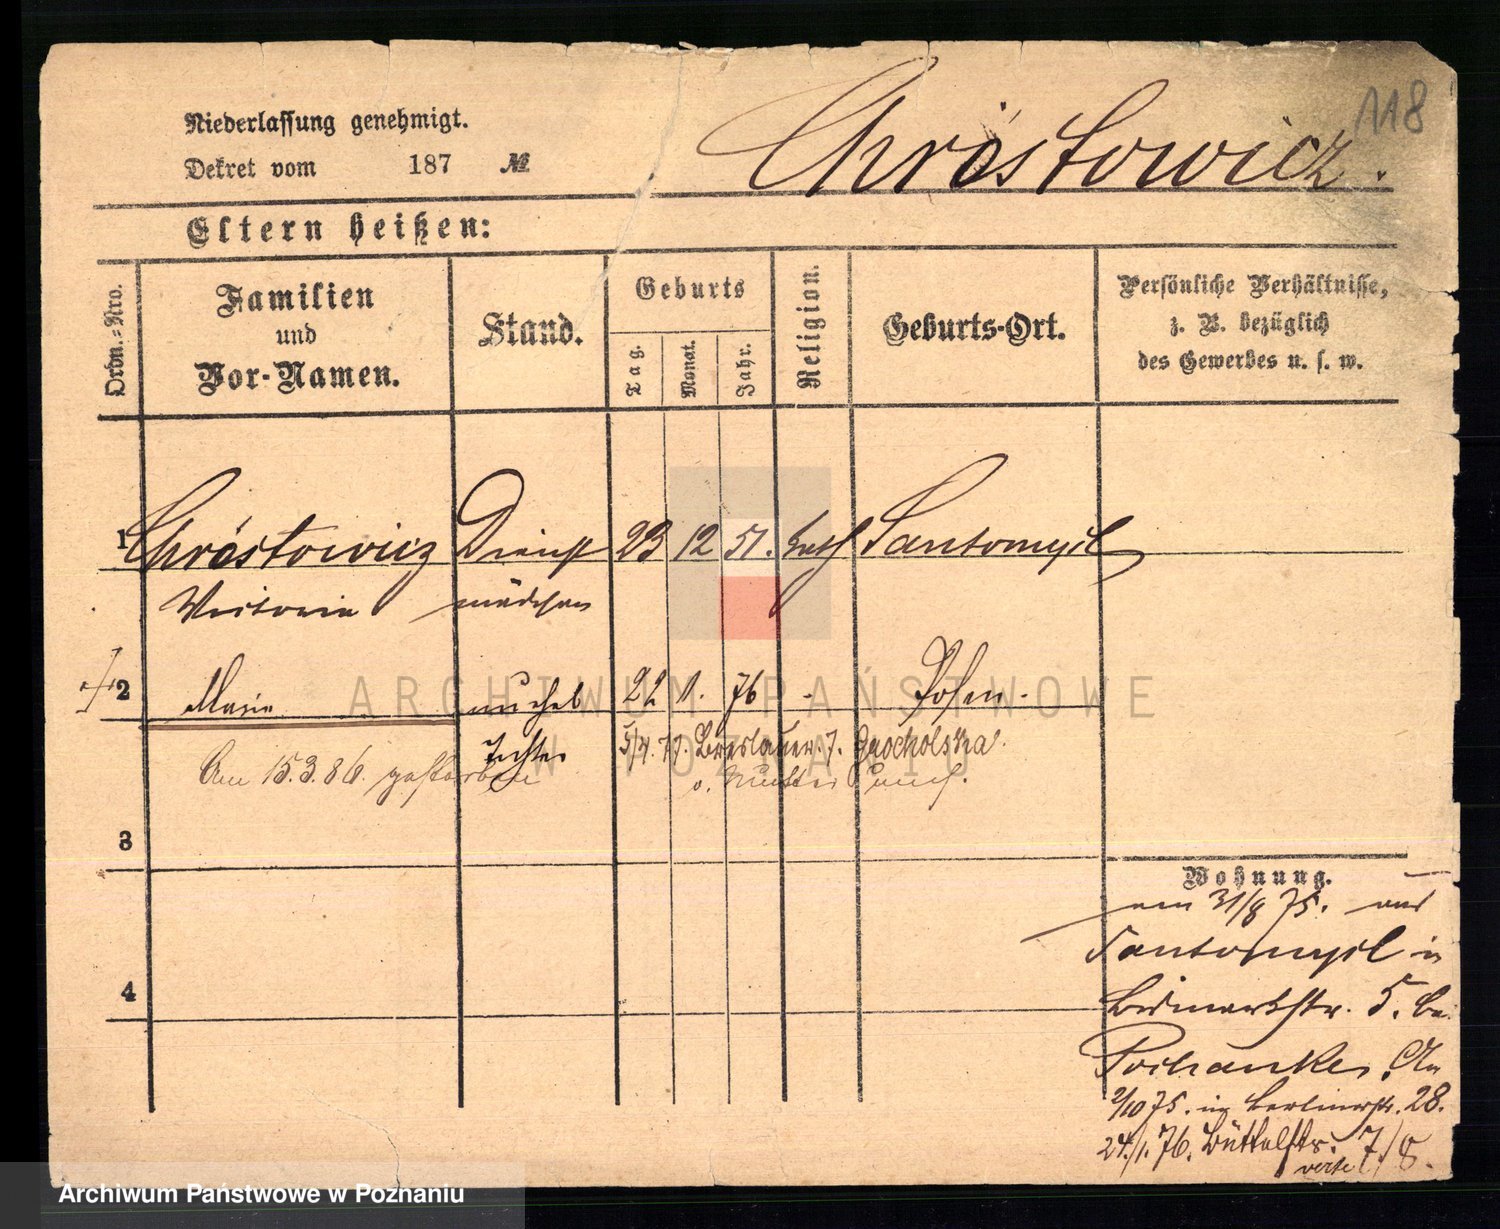 118
Niederlassung genehmigt.
Dekret vom 187 №
Chróstowicz.
Eltern heißen:
Ordn.-Nro.
Familien
und
Vor-Namen.
Stand.
Geburts
Tag.
Monat.
Jahr.
Religion.
Geburts-Ort.
Persönliche Verhältnisse,
z. B. bezüglich
des Gewerbes u. s. w.
1 Chróstowicz Dienst 23 12 51. kath Santomysl
Victoria mädchen
2 Marie unehel 22 1. 76 - Posen.
Tochter 5/4. 77. Breslauer. 7. Grocholska.
Am 15.3.86. gestorben
3
4
Wohnung.
am 31/8 75. aus
Santomysl in
Bismarkstr. 5. bei
An
2/10 75. in Berlinerstr. 28.
24./1. 76. Büttelstr. 7/8.
verte
ARCHIWUM PAŃSTWOWE
W POZNANIU
Archiwum Państwowe w Poznaniu